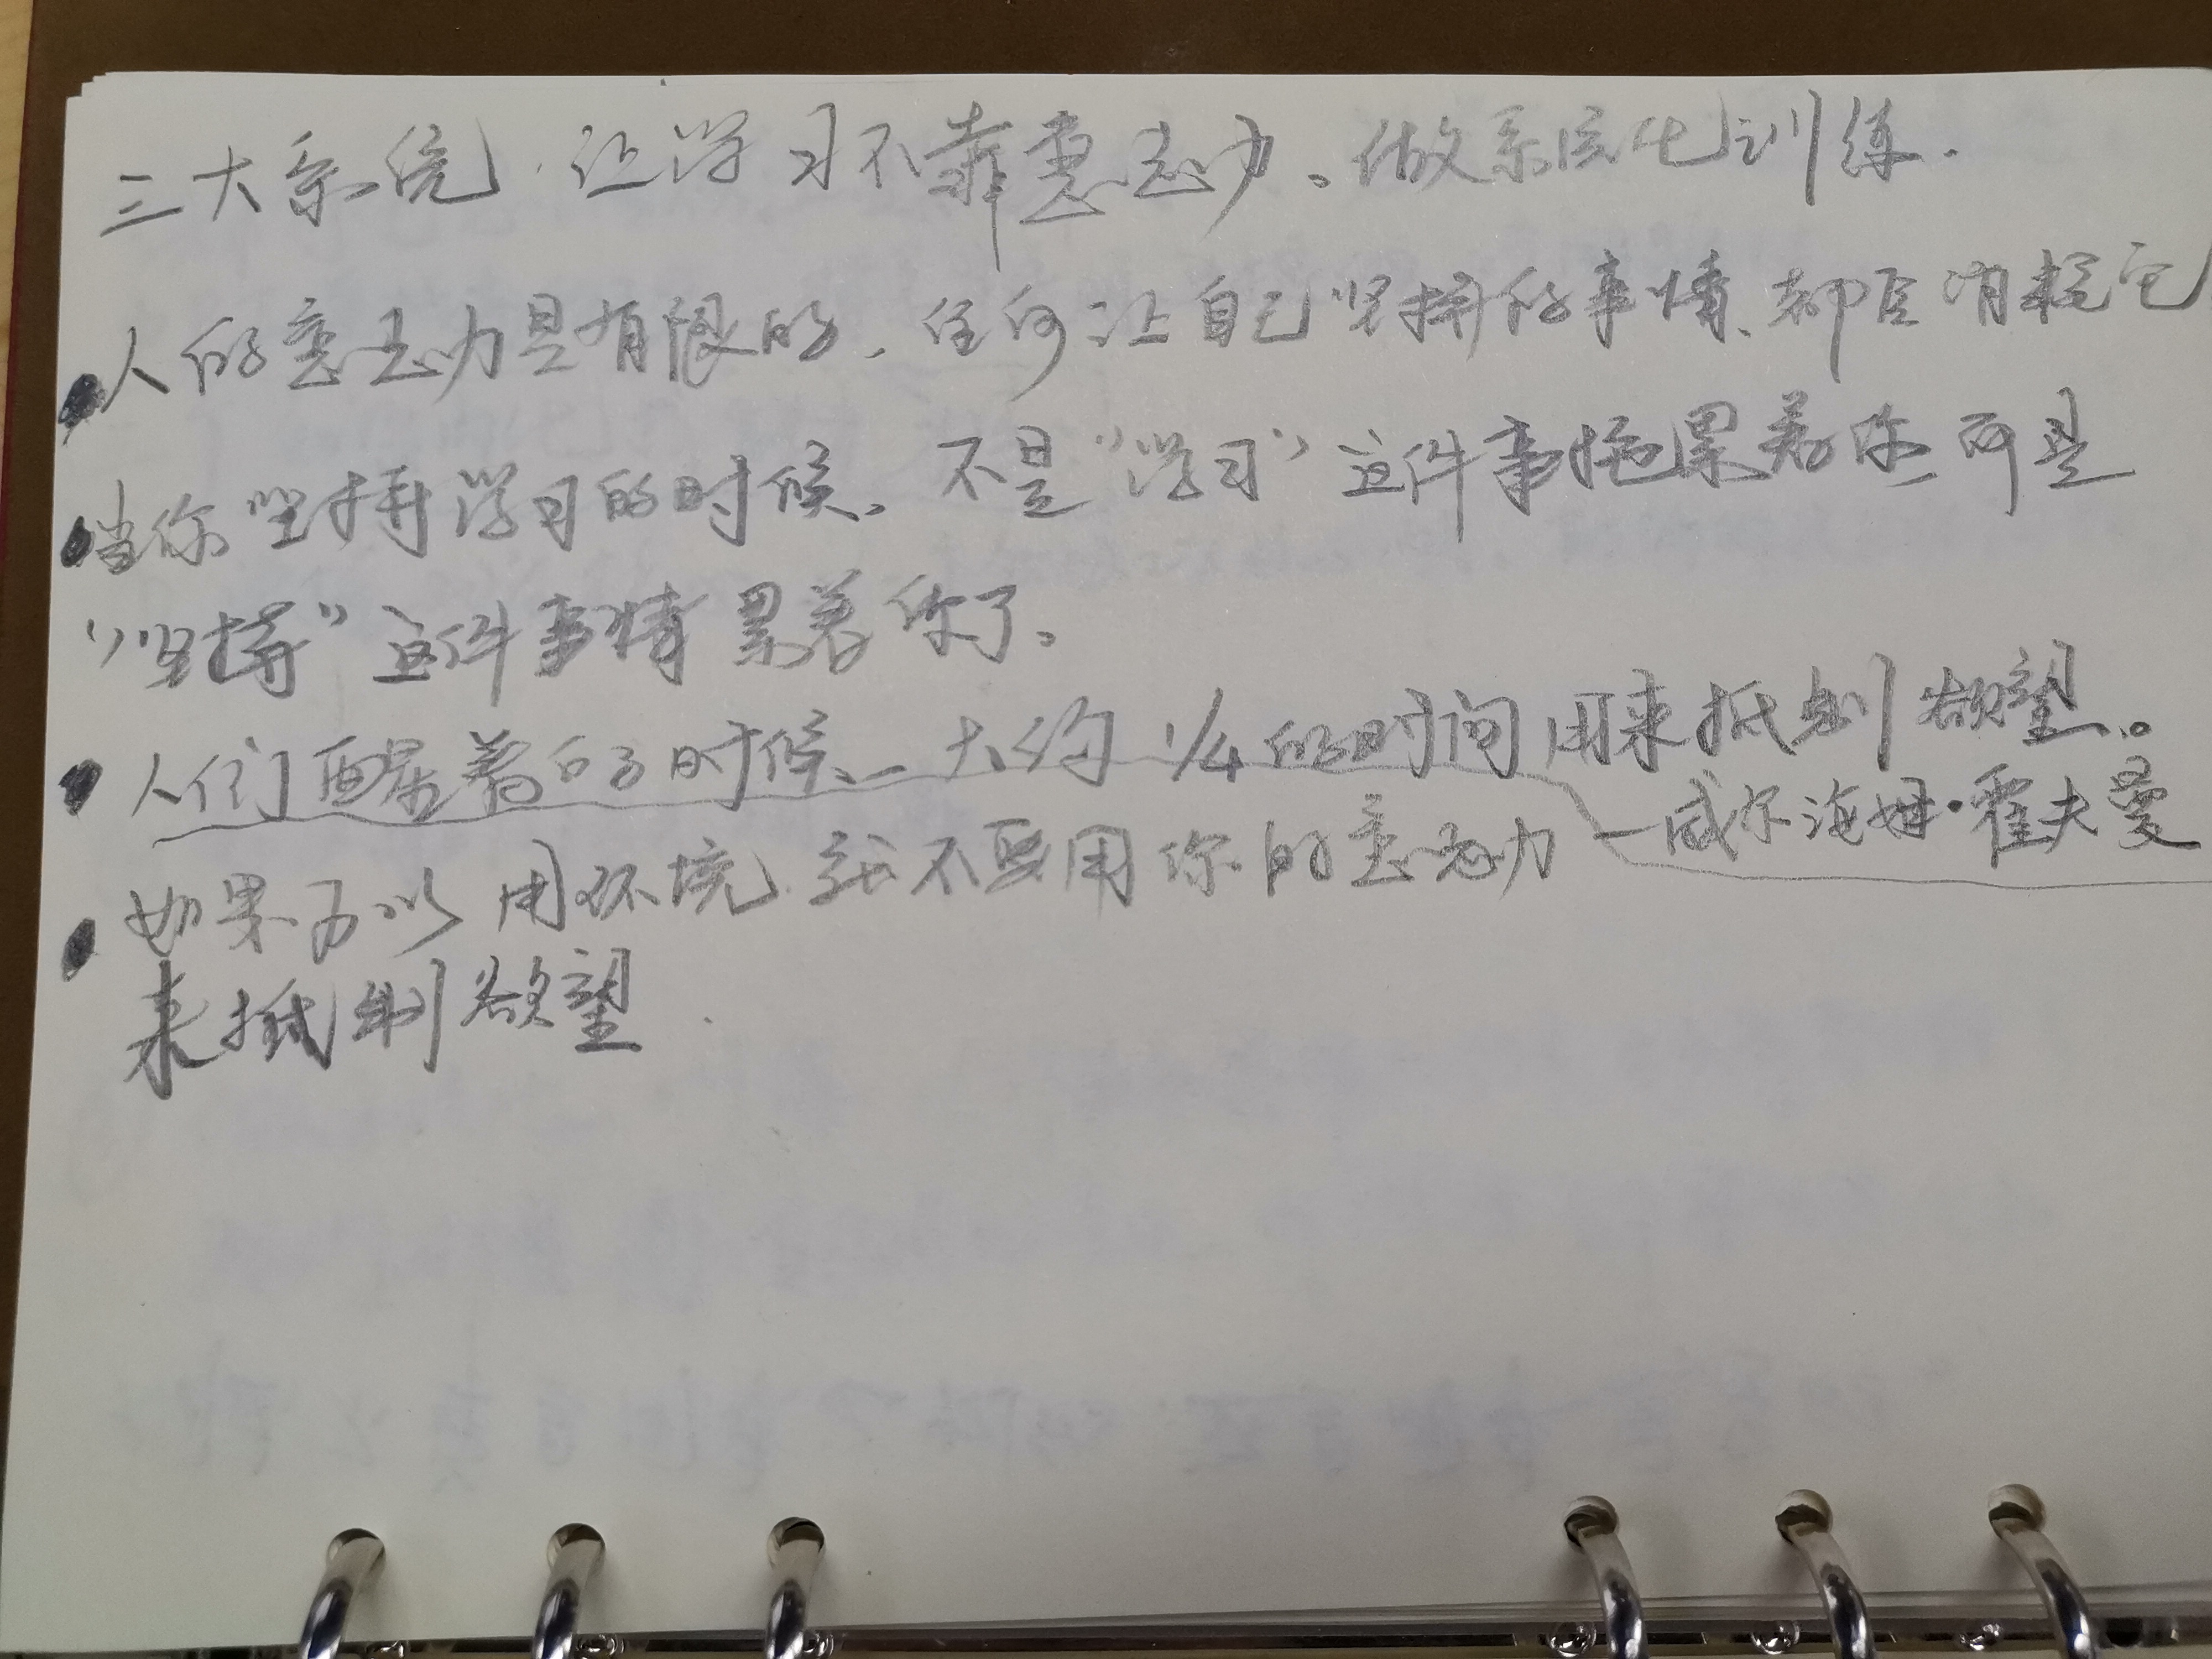 三大系统，让学习不靠意志力。做系统化训练.
人的意志力是有限的，任何让自己坚持的事情、都会消耗它
当你坚持学习的时候，不是“学习”这件事拖累着你 而是
“坚持”这件事情累着你了。
人们醒着的时候，大约1/4的时间用来抵制欲望。
—威尔海姆·霍夫曼
如果可以用环境 就不要用你的意志力
来抵制欲望.